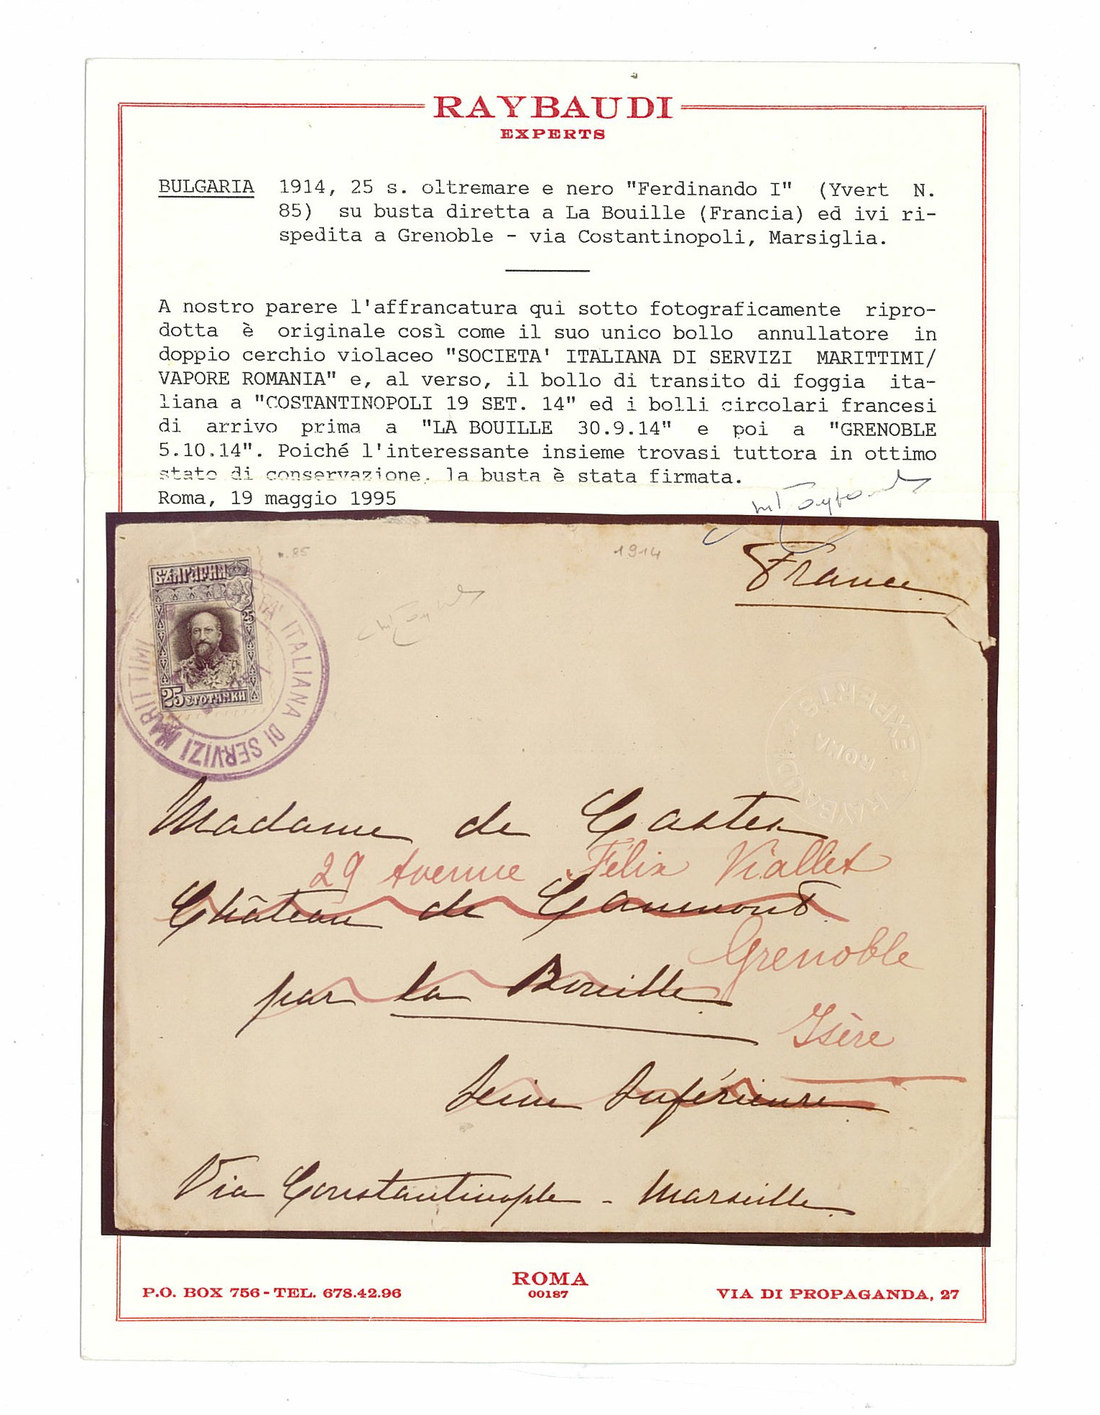 RAYBAUDI
EXPERTS
BULGARIA 1914, 25 s. oltremare e nero "Ferdinando I" (Yvert N.
85) su busta diretta a La Bouille (Francia) ed ivi ri-
spedita a Grenoble - via Costantinopoli, Marsiglia.
A nostro parere l'affrancatura qui sotto fotograficamente ripro-
dotta è originale così come il suo unico bollo annullatore in
doppio cerchio violaceo "SOCIETA' ITALIANA DI SERVIZI MARITTIMI/
VAPORE ROMANIA" e, al verso, il bollo di transito di foggia ita-
liana a "COSTANTINOPOLI 19 SET. 14" ed i bolli circolari francesi
di arrivo prima a "LA BOUILLE 30.9.14" e poi a "GRENOBLE
5.10.14". Poiché l'interessante insieme trovasi tuttora in ottimo
stato di conservazione, la busta è stata firmata.
Roma, 19 maggio 1995
1914
France
БЪЛГАРИЯ
25
25 СТОТИНКИ
ITALIANA DI SERVIZI MARITTIMI
RAYBAUDI EXPERTS
ROMA
Madame de Castex
29 Avenue Félix Viallet
Château de Caumont
Grenoble
par la Bouille
Isère
Seine Inférieure
Via Constantinople - Marseille
ROMA
00187
P.O. BOX 756 - TEL. 678.42.96
VIA DI PROPAGANDA, 27